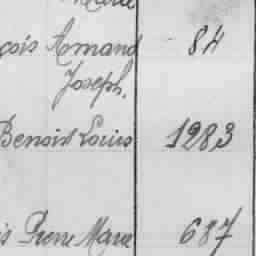 Marie
çois Armand 84
Joseph.
Benoit Louis 1283
is Pierre Marie 687